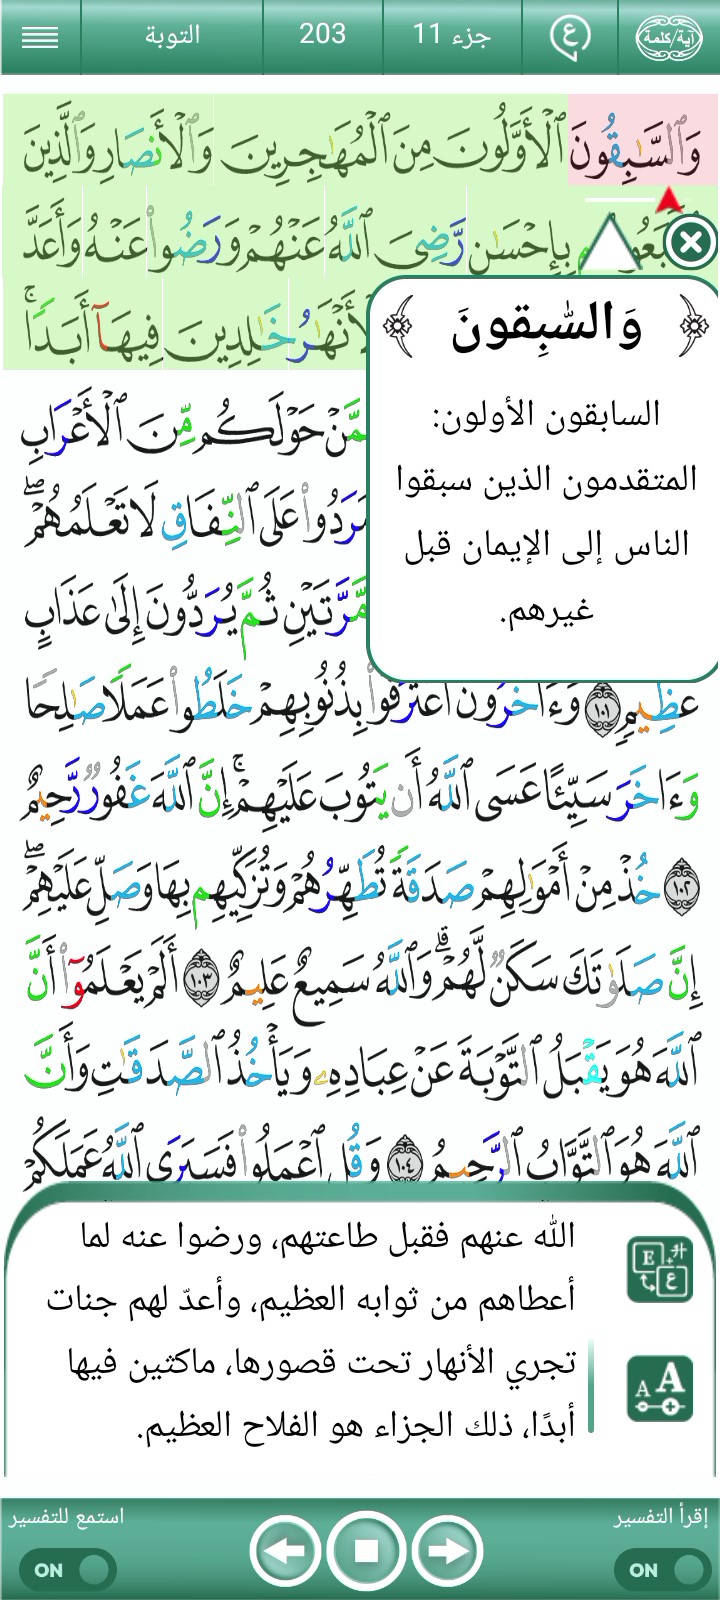 التوبة
203
جزء 11
ع
آية/كلمة
وَٱلسَّـٰبِقُونَ ٱلْأَوَّلُونَ مِنَ ٱلْمُهَـٰجِرِينَ وَٱلْأَنصَارِ وَٱلَّذِينَ
بِإِحْسَـٰنٍ رَّضِىَ ٱللَّهُ عَنْهُمْ وَرَضُوا۟ عَنْهُ وَأَعَدَّ
خَـٰلِدِينَ فِيهَآ أَبَدًا ۚ
حَوْلَكُم مِّنَ ٱلْأَعْرَابِ
مَرَدُوا۟ عَلَى ٱلنِّفَاقِ لَا تَعْلَمُهُمْ ۖ
مَّرَّتَيْنِ ثُمَّ يُرَدُّونَ إِلَىٰ عَذَابٍ
عَظِيمٍ ١٠١ وَءَاخَرُونَ ٱعْتَرَفُوا۟ بِذُنُوبِهِمْ خَلَطُوا۟ عَمَلًا صَـٰلِحًا
وَءَاخَرَ سَيِّئًا عَسَى ٱللَّهُ أَن يَتُوبَ عَلَيْهِمْ ۚ إِنَّ ٱللَّهَ غَفُورٌ رَّحِيمٌ
١٠٢ خُذْ مِنْ أَمْوَٰلِهِمْ صَدَقَةً تُطَهِّرُهُمْ وَتُزَكِّيهِم بِهَا وَصَلِّ عَلَيْهِمْ ۖ
إِنَّ صَلَوٰتَكَ سَكَنٌ لَّهُمْ ۗ وَٱللَّهُ سَمِيعٌ عَلِيمٌ ١٠٣ أَلَمْ يَعْلَمُوٓا۟ أَنَّ
ٱللَّهَ هُوَ يَقْبَلُ ٱلتَّوْبَةَ عَنْ عِبَادِهِۦ وَيَأْخُذُ ٱلصَّدَقَـٰتِ وَأَنَّ
ٱللَّهَ هُوَ ٱلتَّوَّابُ ٱلرَّحِيمُ ١٠٤ وَقُلِ ٱعْمَلُوا۟ فَسَيَرَى ٱللَّهُ عَمَلَكُمْ
وَالسّٰبِقونَ
السابقون الأولون:
المتقدمون الذين سبقوا
الناس إلى الإيمان قبل
غيرهم.
الله عنهم فقبل طاعتهم، ورضوا عنه لما
أعطاهم من ثوابه العظيم، وأعدّ لهم جنات
تجري الأنهار تحت قصورها، ماكثين فيها
أبدًا، ذلك الجزاء هو الفلاح العظيم.
إقرأ التفسير
استمع للتفسير
ON
ON